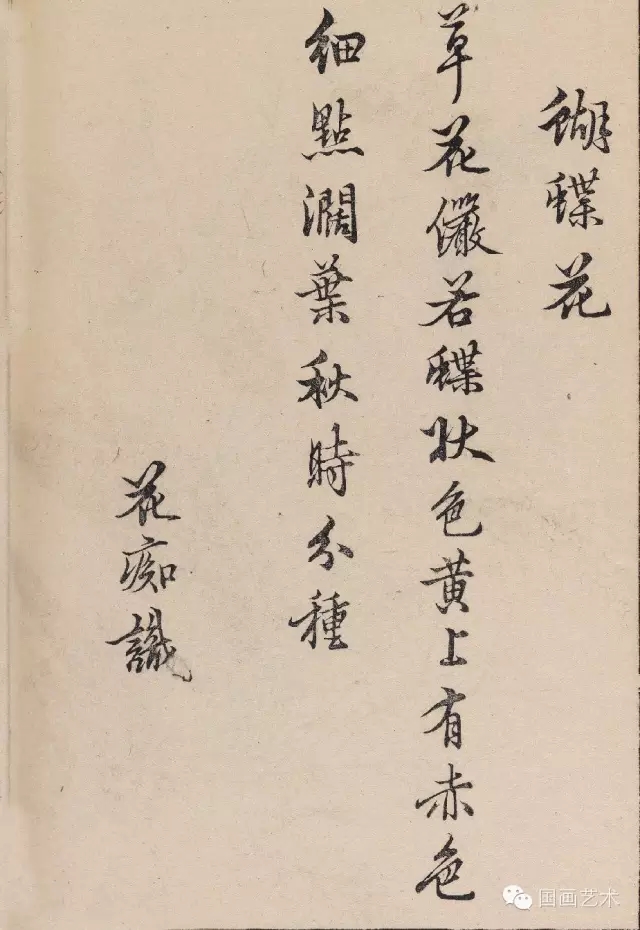 蝴蝶花
草花儼若蝶狀色黄上有赤色
細點濶葉秋時分種
花痴識
国画艺术